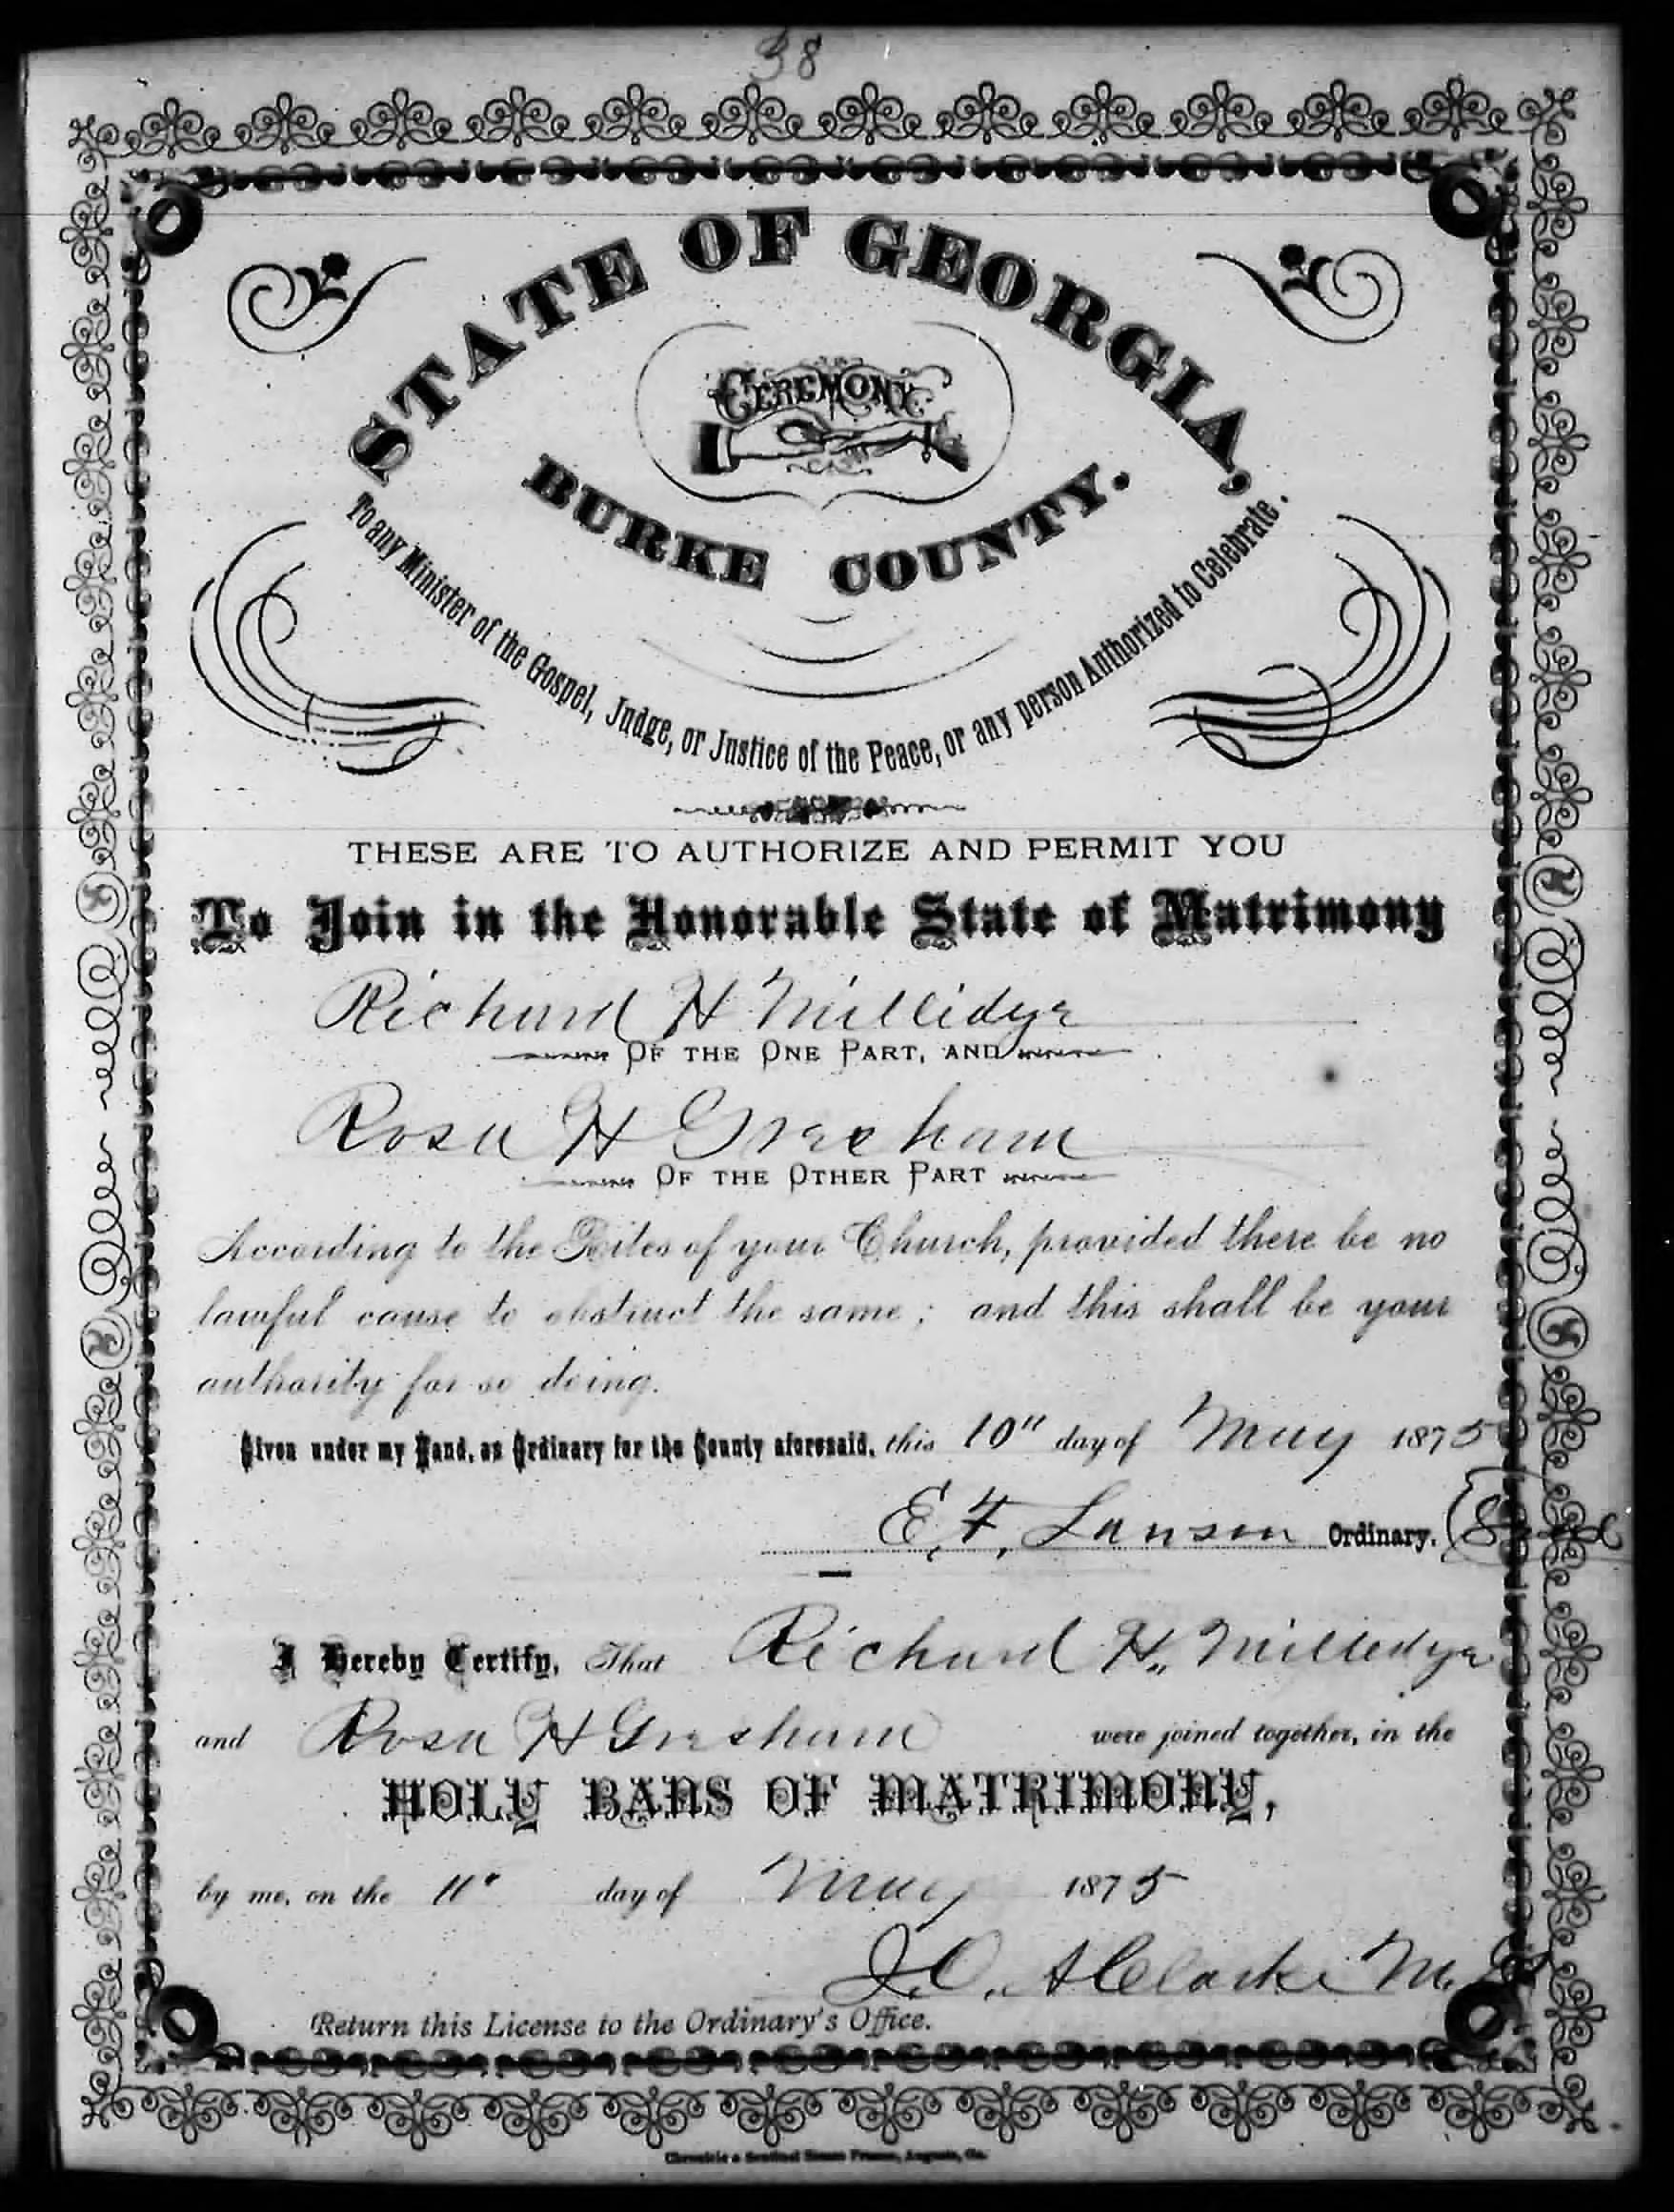 38
STATE OF GEORGIA,
CEREMONY
BURKE COUNTY.
To any Minister of the Gospel, Judge, or Justice of the Peace, or any person Authorized to Celebrate.
THESE ARE TO AUTHORIZE AND PERMIT YOU
To Join in the Honorable State of Matrimony
Richard H Millidge
OF THE ONE PART, AND
Rosa H Gresham
OF THE OTHER PART
According to the Rites of your Church, provided there be no
lawful cause to obstruct the same; and this shall be your
authority for so doing.
Given under my Hand, as Ordinary for the County aforesaid, this 10" day of May 1875
E. F. Lawson Ordinary. {Seal
I Hereby Certify, That Richard H. Milledge
and Rosa H Gresham were joined together, in the
HOLY BANS OF MATRIMONY,
by me, on the 11" day of May 1875
J. O. A Clarke M.
Return this License to the Ordinary's Office.
Chronicle & Sentinel Steam Presses, Augusta, Ga.